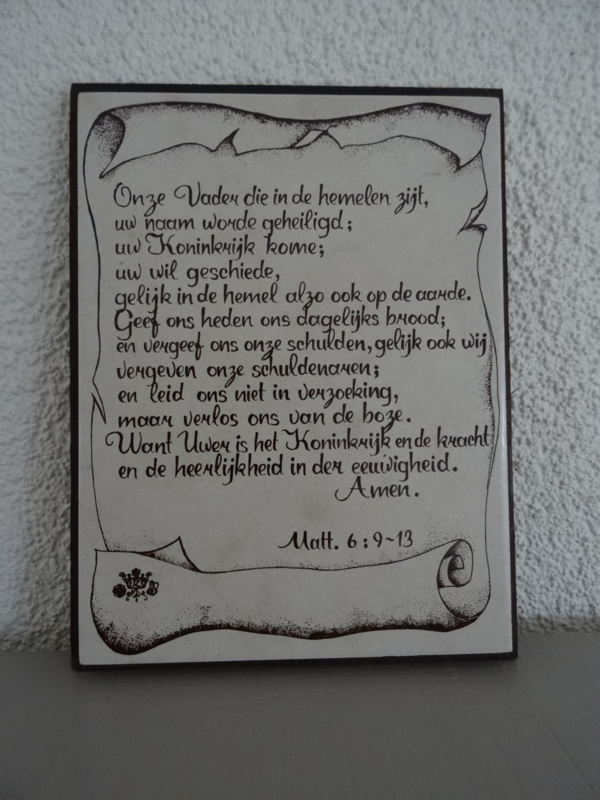 Onze Vader die in de hemelen zijt,
uw naam worde geheiligd;
uw Koninkrijk kome;
uw wil geschiede,
gelijk in de hemel alzo ook op de aarde.
Geef ons heden ons dagelijks brood;
en vergeef ons onze schulden, gelijk ook wij
vergeven onze schuldenaren;
en leid ons niet in verzoeking,
maar verlos ons van de boze.
Want Uwer is het Koninkrijk en de kracht
en de heerlijkheid in der eeuwigheid.
Amen.
Matt. 6:9~13